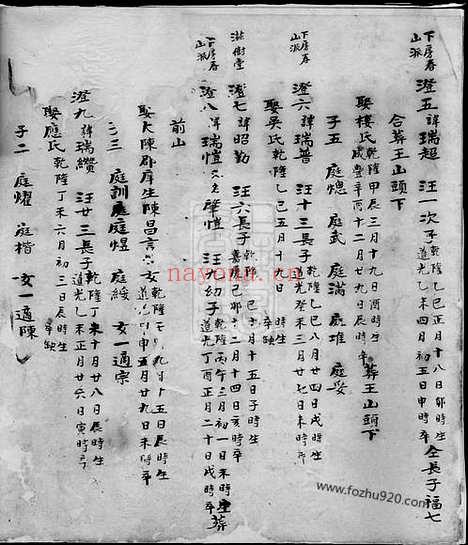 下房春山派
澄五 諱瑞超 汪一次子 乾隆乙巳正月十八日卯時生 道光乙未四月初五日申時卒 仝長子福七
合葬王山頭下
娶樓氏 乾隆甲辰三月十九日酉時生 咸豐辛酉十二月廿八日辰時卒 葬王山頭下
子五 庭憁 庭武 庭滿 庭堆 庭妥
下房春山派
澄六 諱瑞普 汪十三長子 乾隆乙巳八月廿四日戌時生 道光癸未三月廿七日未時卒
娶吳氏 乾隆乙巳五月十九日 時生 卒缺
樹堂
澄七 諱昭勤 汪六長子 乾隆 巳 月十五日子時生 嘉慶己卯十二月十四日亥時卒
下房春山派
澄八 諱瑞愷 又名肇愷 汪 幼子 乾隆丙午三月初一日未時生 道光丁酉正月二十日戌時卒 葬
前山
娶大陳郡庠生陳昌言六女 乾隆 九月十五日辰時生 道光 申五月廿九日未時卒
子三 庭訓 庭煜 庭綏 女一適宗
澄九 諱瑞纘 汪廿三長子 乾隆丁未十月廿八日辰時生 道光乙未正月廿六日寅時卒
娶應氏 乾隆丁未六月初三日辰時生 卒缺
子二 庭燿 庭楷 女一適陳
nayona.cn
www.fozhu920.com